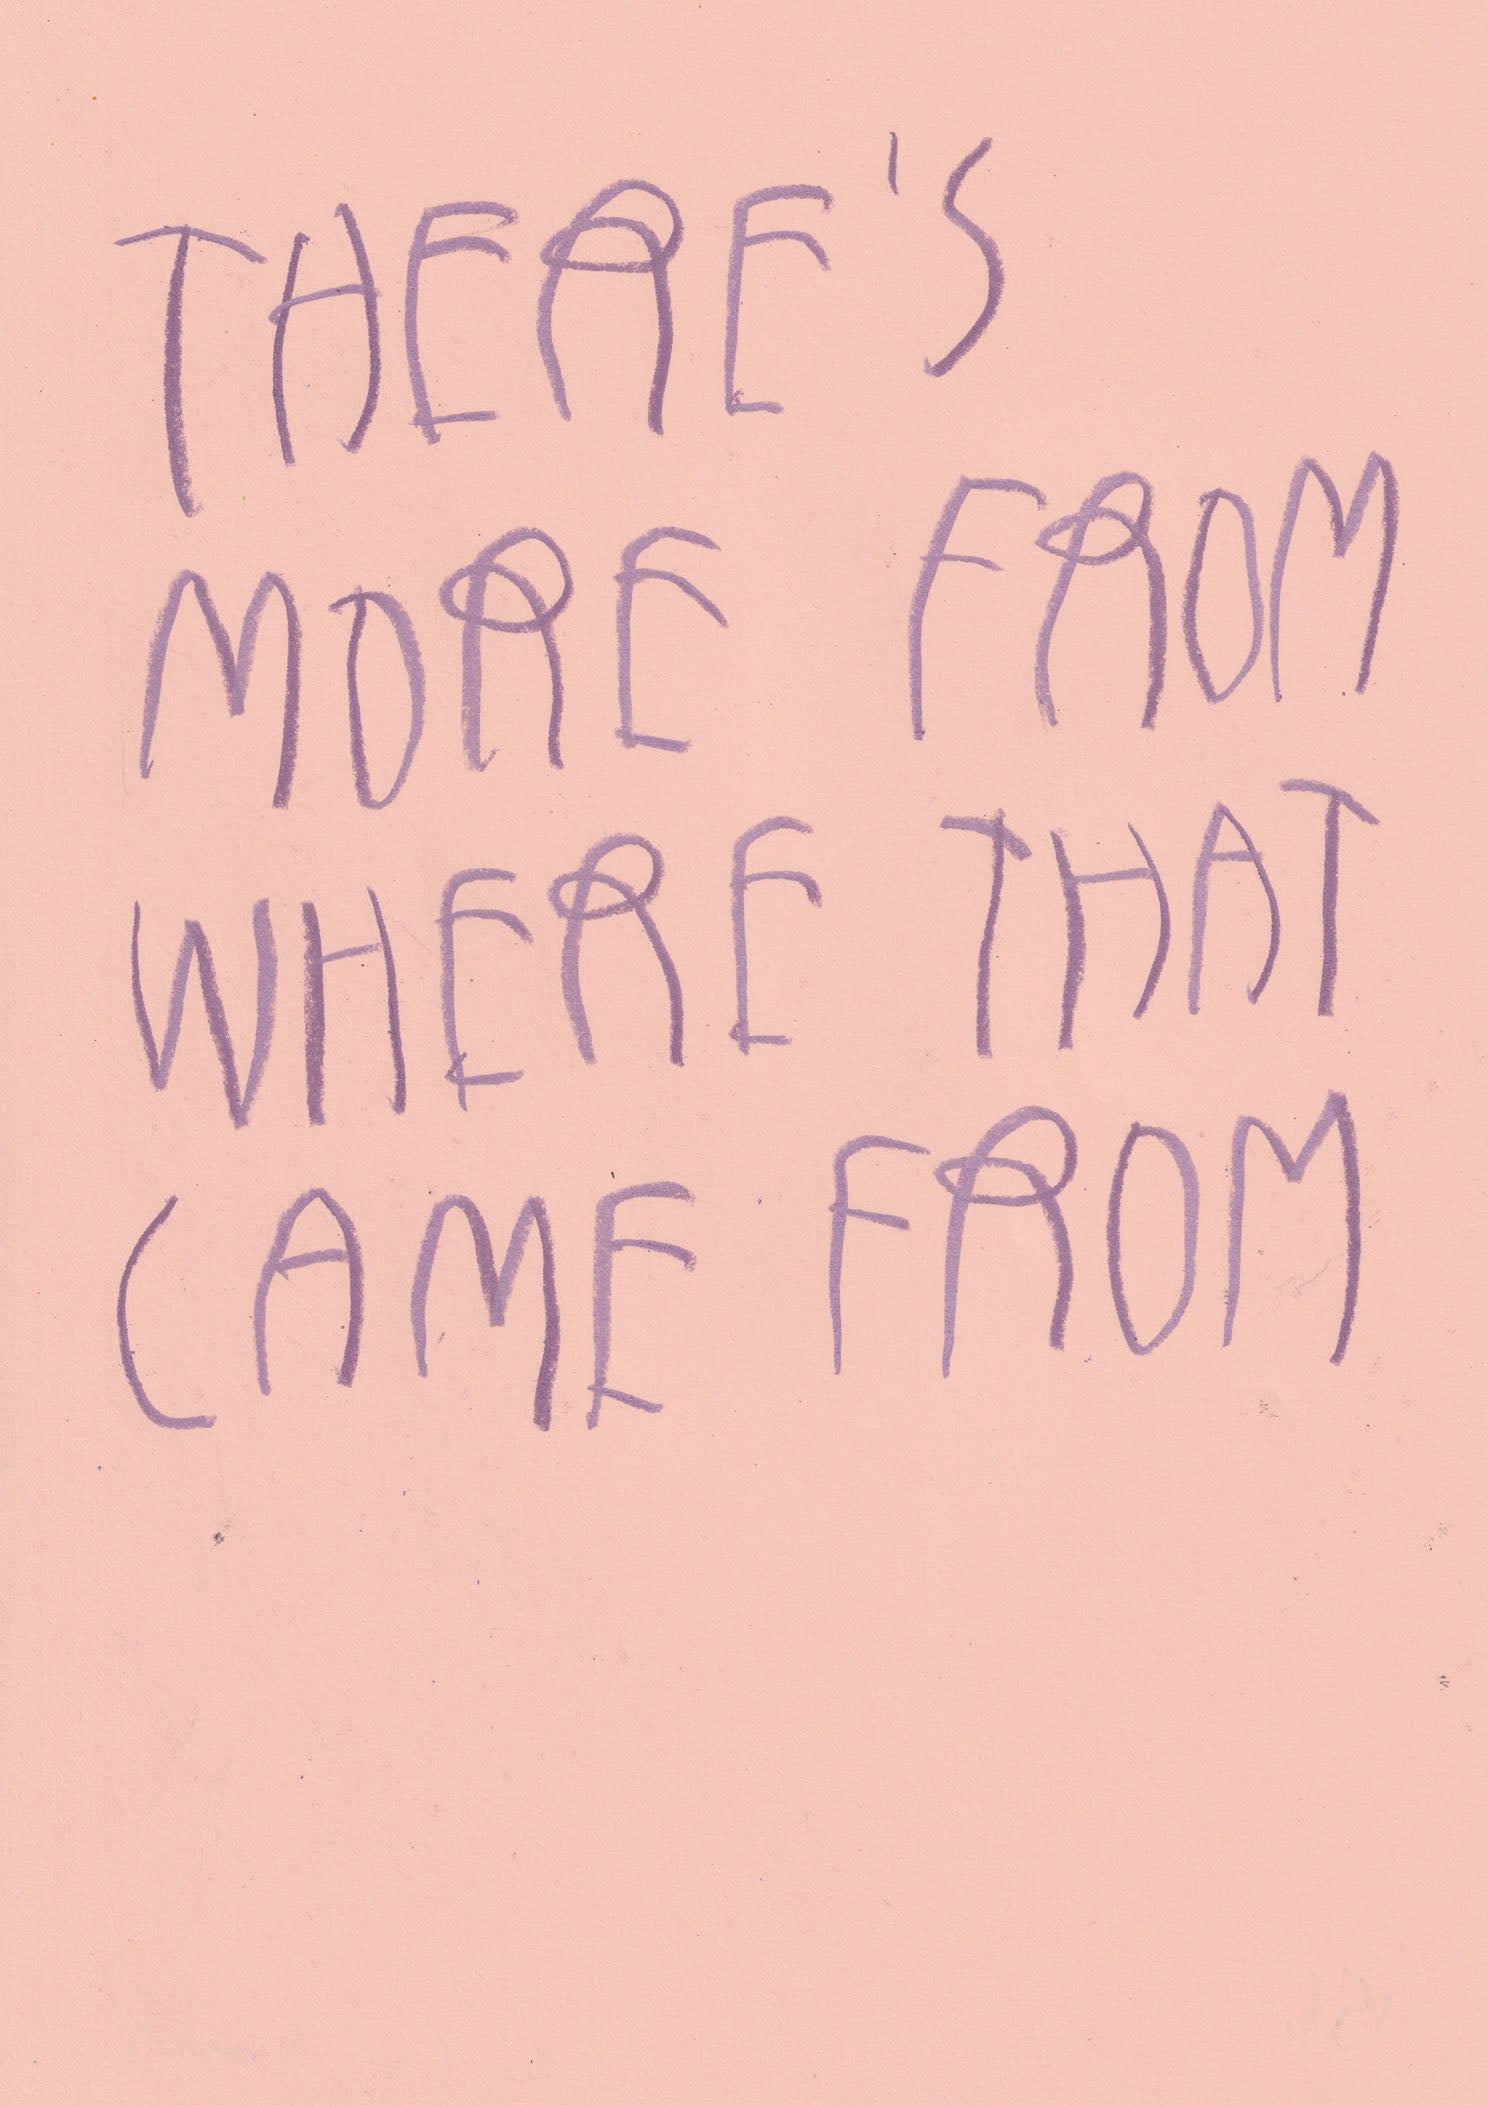 THERE'S
MORE FROM
WHERE THAT
CAME FROM